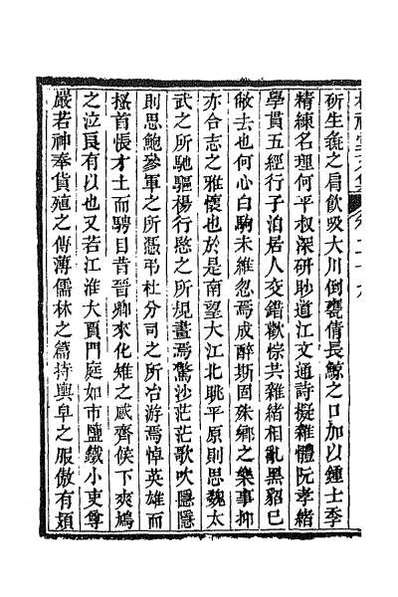 斫生彘之肩飲吸大川倒甕倩長鯨之口加以鍾士季
精練名理何平叔深研眇道江文通詩擬雜體阮孝緒
學貫五經行子泊居人交錯歡悰共雜緒相亂黑貂已
敝去也何心白駒未維忽焉成醉斯固殊鄉之樂事抑
亦合志之雅懷也於是南望大江北眺平原則思魏太
武之所馳驅楊行愍之所規畫焉驚沙茫茫歌吹隱隱
則思鮑參軍之所憑弔杜分司之所冶游焉悼英雄而
搔首悵才士而騁目昔晉卿來化雉之感齊侯下爽鳩
之泣良有以也又若江淮大賈門庭如市鹽鐵小吏尊
嚴若神奉貨殖之傳薄儒林之篇持輿皁之服傲有頍